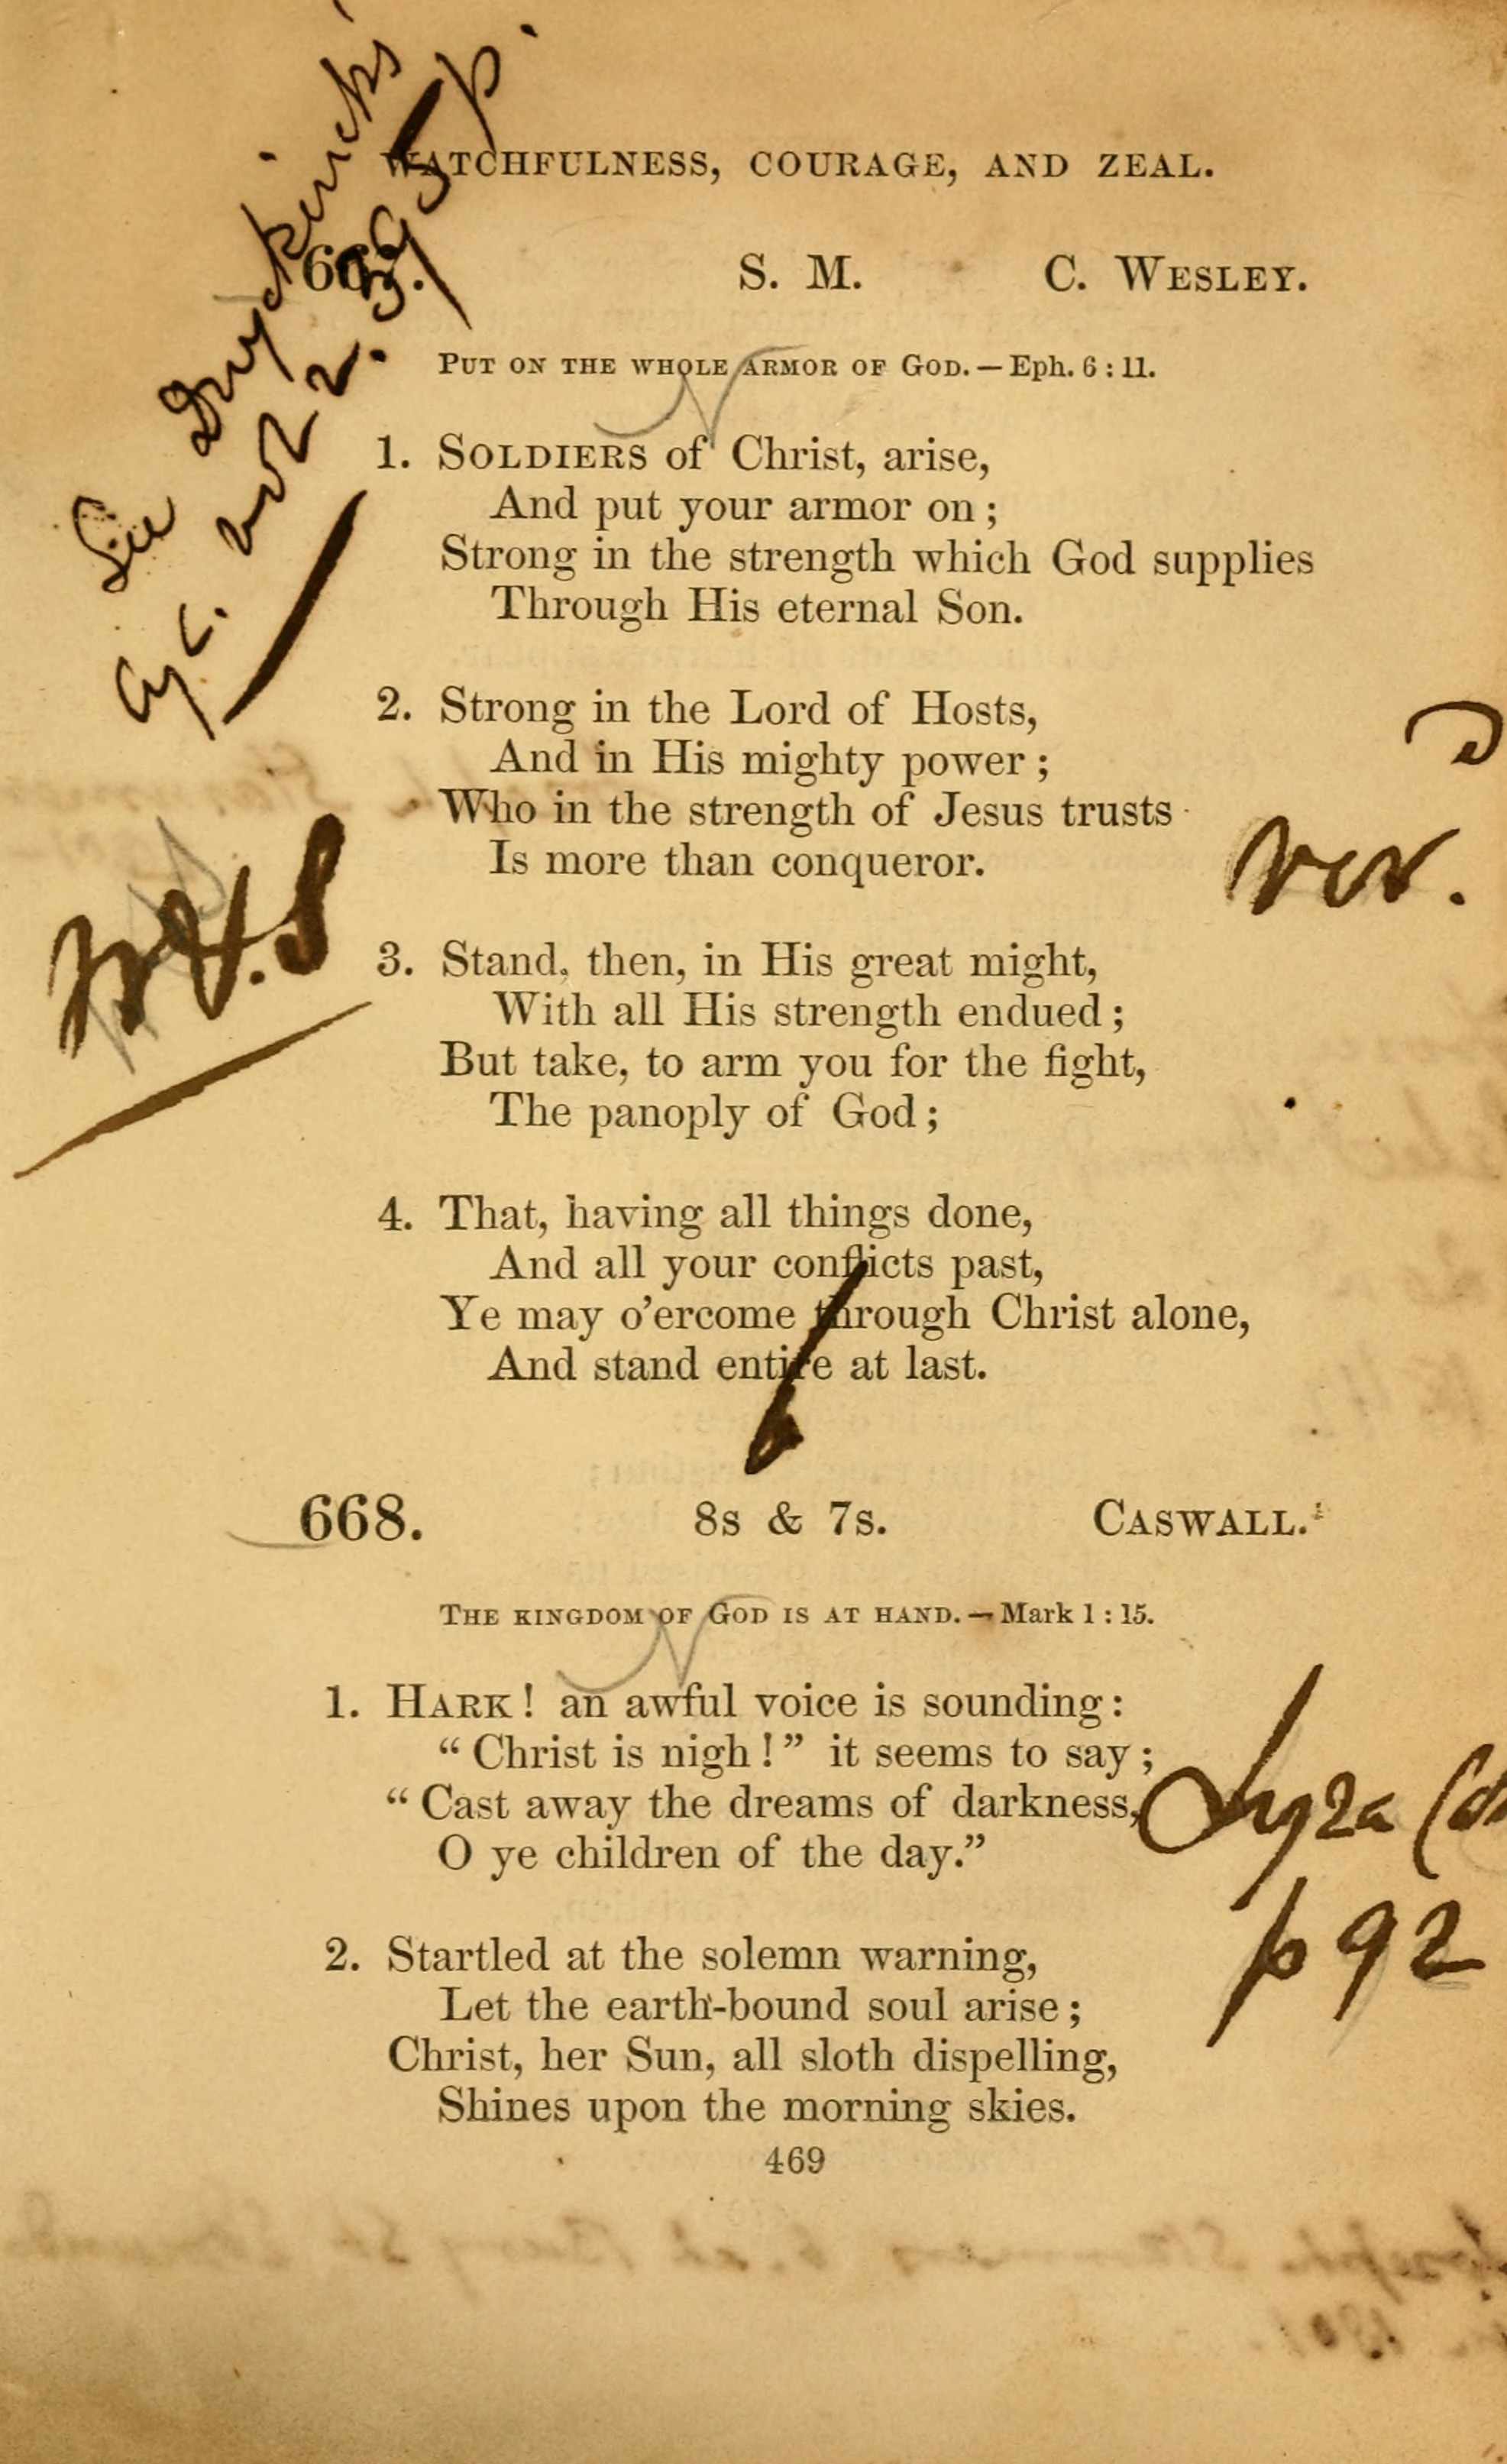 See Duyckinck's
Cyc. vol 2. 395 p.
WATCHFULNESS, COURAGE, AND ZEAL.
S. M. C. WESLEY.
PUT ON THE WHOLE ARMOR OF GOD. — Eph. 6 : 11.
1. SOLDIERS of Christ, arise,
And put your armor on ;
Strong in the strength which God supplies
Through His eternal Son.
2. Strong in the Lord of Hosts,
And in His mighty power ;
Who in the strength of Jesus trusts
Is more than conqueror.
ver.
3. Stand, then, in His great might,
With all His strength endued ;
But take, to arm you for the fight,
The panoply of God ;
4. That, having all things done,
And all your conflicts past,
Ye may o'ercome through Christ alone,
And stand entire at last.
668. 8s & 7s. CASWALL.
THE KINGDOM OF GOD IS AT HAND. — Mark 1 : 15.
1. HARK ! an awful voice is sounding :
" Christ is nigh ! " it seems to say ;
" Cast away the dreams of darkness,
O ye children of the day."
Lyra
p 92
2. Startled at the solemn warning,
Let the earth-bound soul arise ;
Christ, her Sun, all sloth dispelling,
Shines upon the morning skies.
469